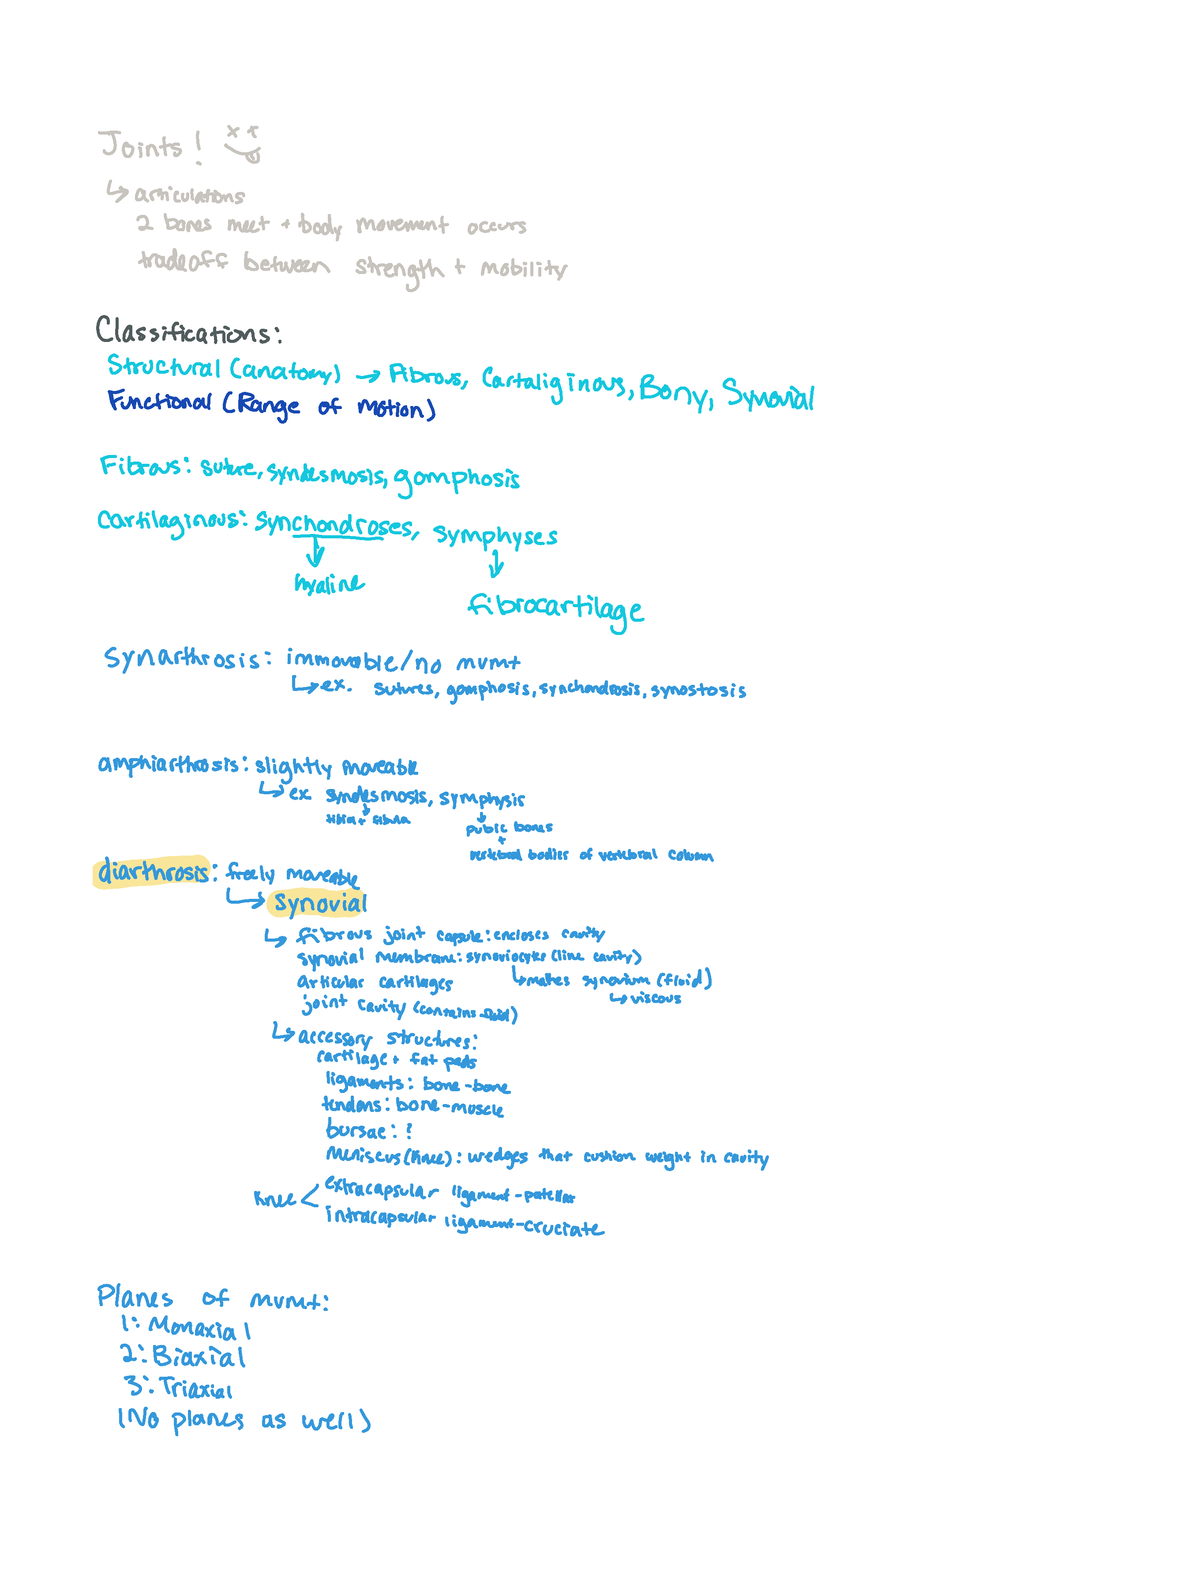 Joints!
↳ articulations
2 bones meet + body movement occurs
tradeoff between strength + mobility
Classifications:
Structural (anatomy) → Fibrous, Cartaliginous, Bony, Synovial
Functional (Range of Motion)
Fibrous: suture, syndesmosis, gomphosis
Cartilaginous: Synchondroses, symphyses
hyaline
fibrocartilage
Synarthrosis: immovable/no mvmt
↳ ex. sutures, gomphosis, synchondrosis, synostosis
amphiarthrosis: slightly moveable
↳ ex syndesmosis, symphysis
tibia + fibula
pubic bones
+
vertebral bodies of vertebral column
diarthrosis: freely moveable
↳ synovial
↳ fibrous joint capsule: encloses cavity
synovial membrane: synoviocytes (line cavity)
articular cartilages ↳ makes synovium (fluid)
↳ viscous
joint cavity (contains fluid)
↳ accessory structures:
cartilage + fat pads
ligaments: bone-bone
tendons: bone-muscle
bursae: ?
meniscus (knee): wedges that cushion weight in cavity
knee < extracapsular ligament-patellar
intracapsular ligament-cruciate
Planes of mvmt:
1: Monaxial
2: Biaxial
3: Triaxial
(No planes as well)